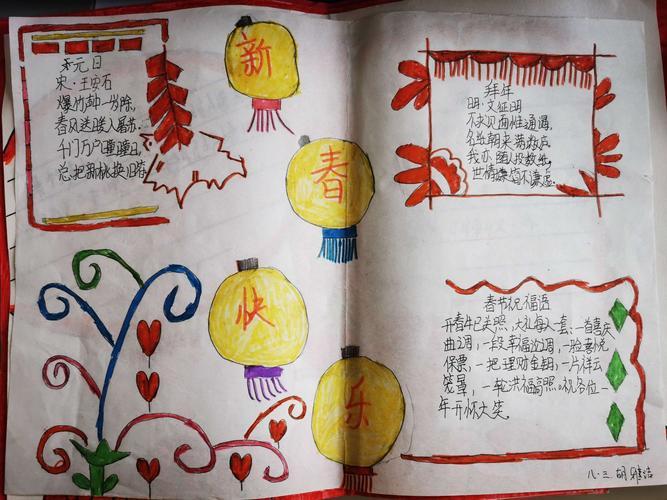 元日
宋·王安石
爆竹声中一岁除,
春风送暖入屠苏.
千门万户曈曈日,
总把新桃换旧符
新
春
快
乐
拜年
明·文征明
不求见面惟通谒,
名纸朝来满敝庐.
我亦随人投数纸,
世情嫌简不嫌虚.
春节祝福语
开春牛已关照,大礼每人一套、一首喜庆
曲调,一段幸福论调,一脸喜悦
保票,一把理财金钥,一片祥云
笼罩,一轮洪福高照。祝各位一
年开怀大笑。
八·三 胡雅洁